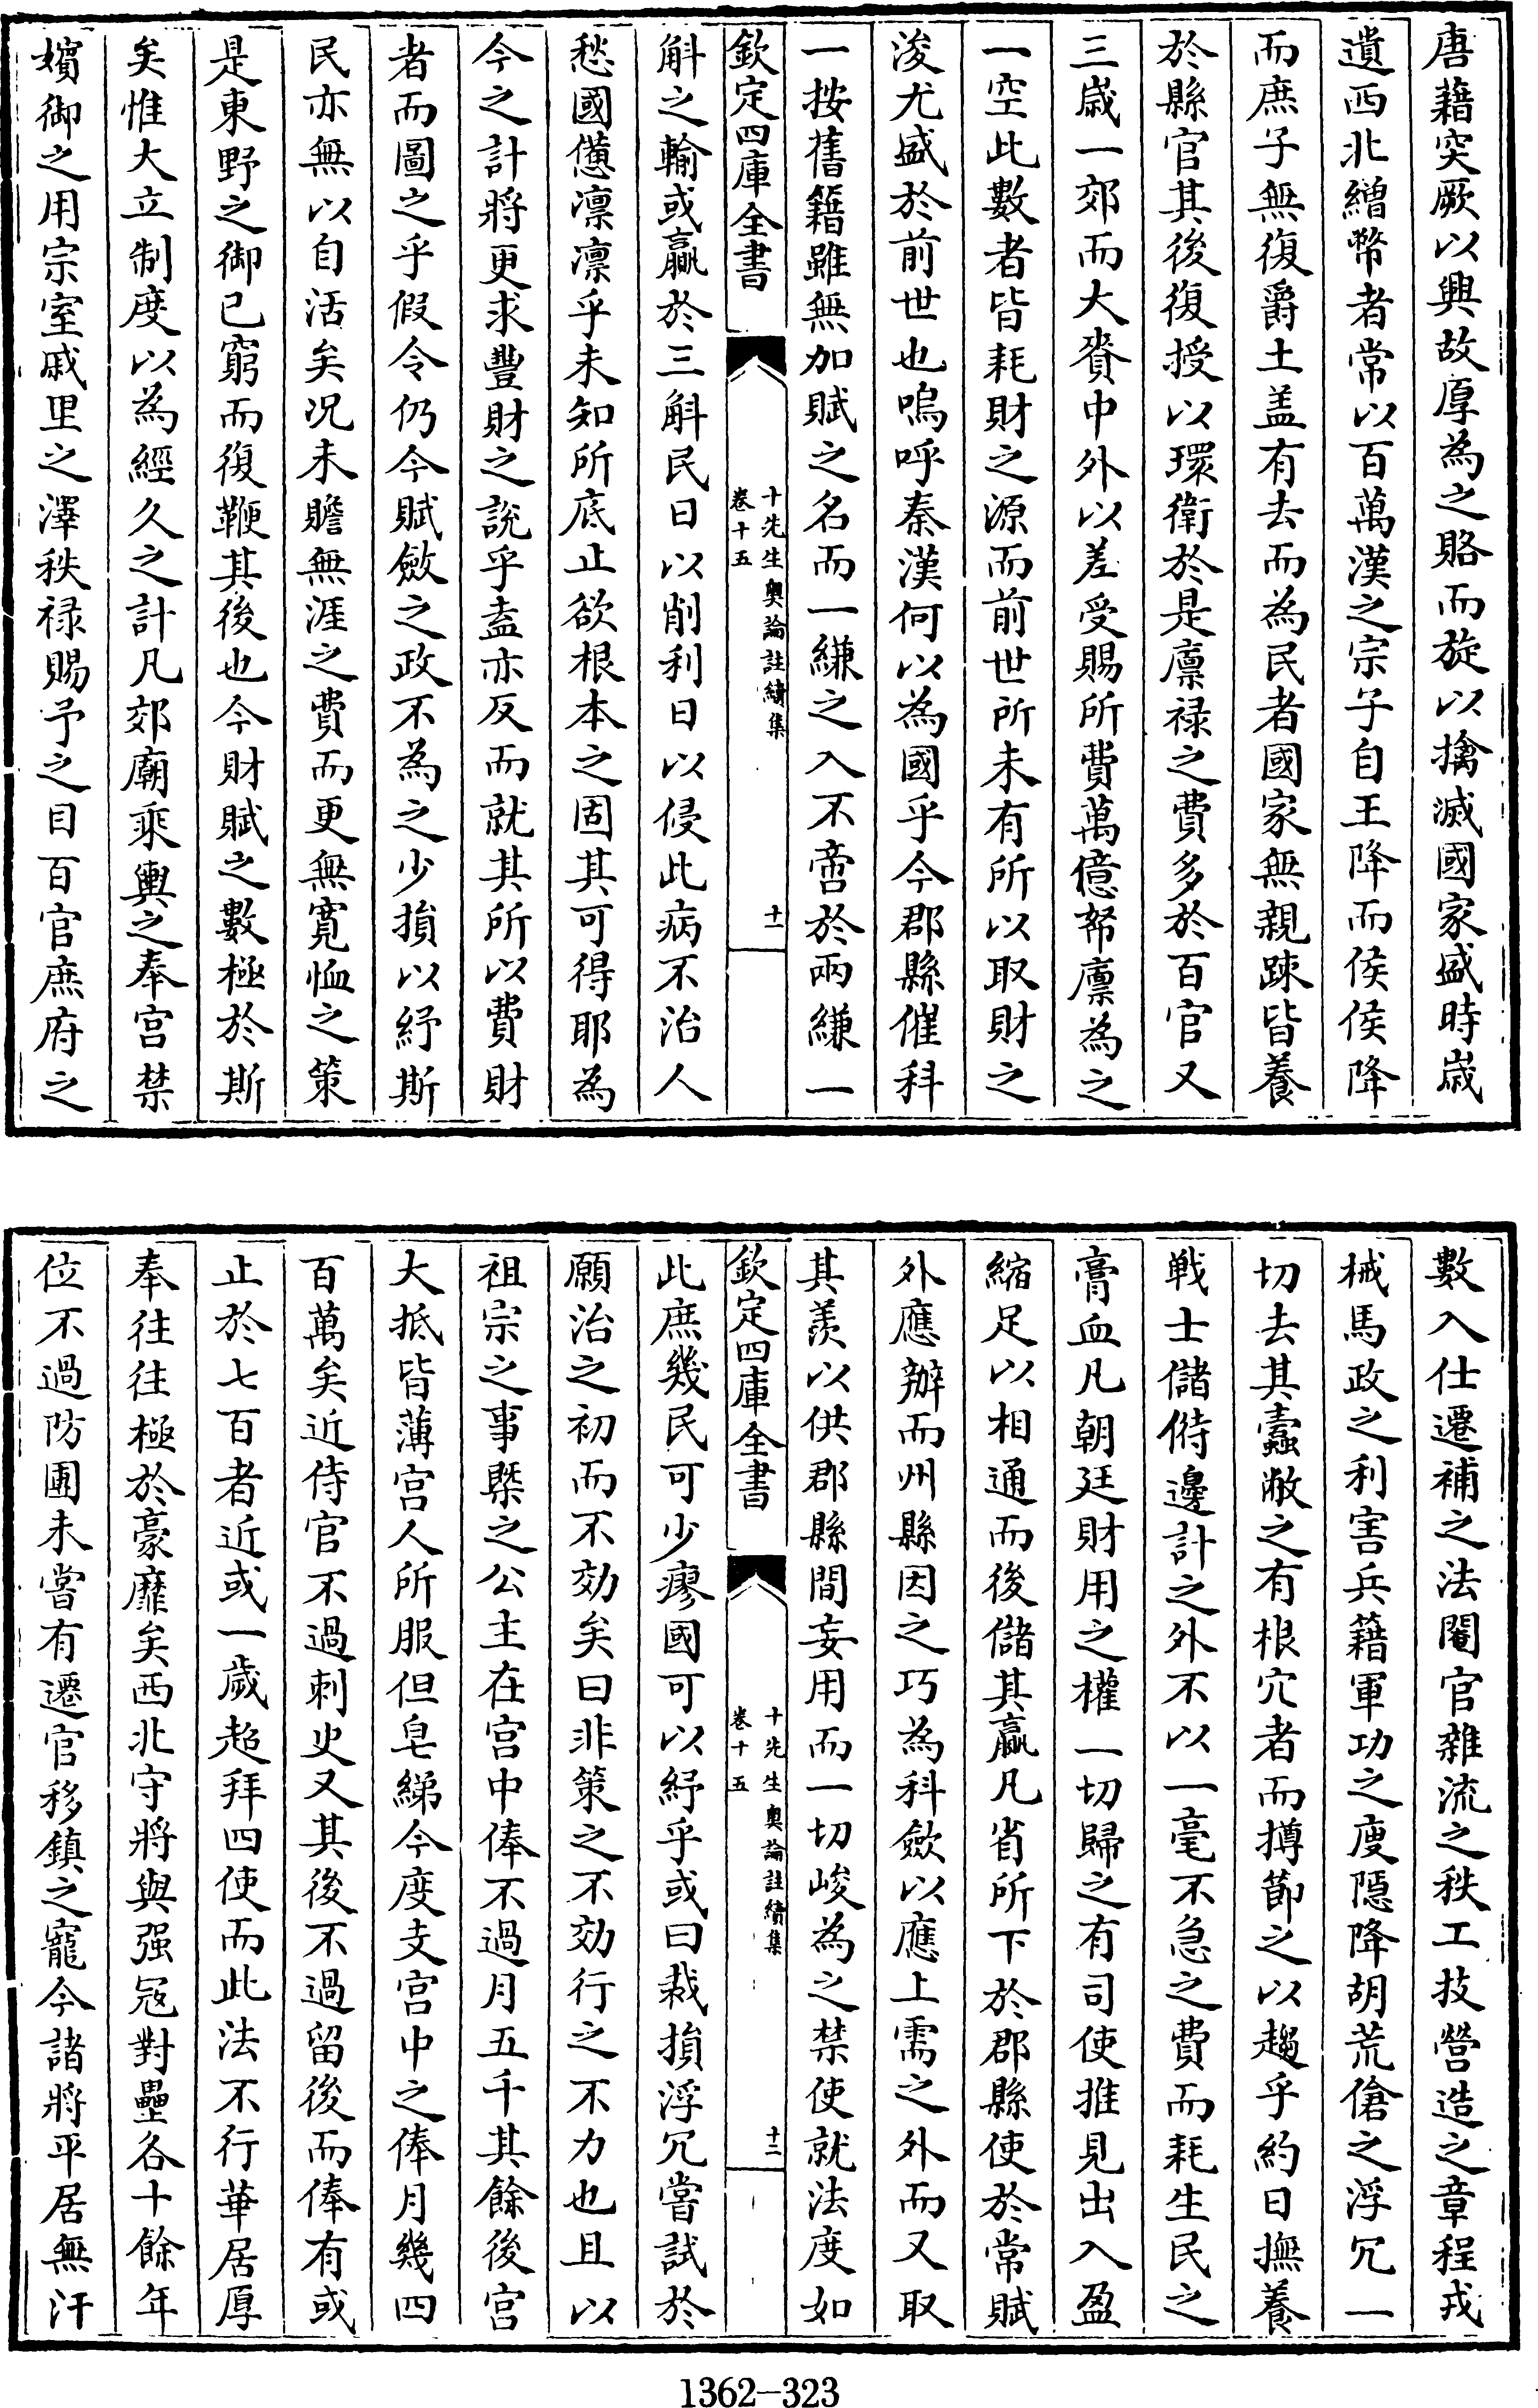 唐藉突厥以興故厚為之賂而旋以擒滅國家盛時歳
遺西北繒幣者常以百萬漢之宗子自王降而侯侯降
而庶子無復爵土盖有去而為民者國家無親踈皆養
於縣官其後復授以環衛於是廪禄之費多於百官又
三歳一郊而大賚中外以差受賜所費萬億帑廪為之
一空此數者皆耗財之源而前世所未有所以取財之
浚尤盛於前世也嗚呼秦漢何以為國乎今郡縣催科
一按舊籍雖無加賦之名而一縑之入不啻於兩縑一
欽定四庫全書
十先生奧論註續集
卷十五
十一
斛之輸或贏於三斛民日以削利日以侵此病不治人
愁國憊凛凛乎未知所底止欲根本之固其可得耶為
今之計將更求豐財之說乎盍亦反而就其所以費財
者而圖之乎假令仍今賦斂之政不為之少損以紓斯
民亦無以自活矣况未贍無涯之費而更無寛恤之策
是東野之御已窮而復鞭其後也今財賦之數極於斯
矣惟大立制度以為經久之計凡郊廟乘輿之奉宫禁
嬪御之用宗室戚里之澤秩禄賜予之目百官庶府之
數入仕遷補之法閹官雜流之秩工技營造之章程戎
械馬政之利害兵籍軍功之虚隠降胡荒傖之浮冗一
切去其蠧敝之有根穴者而撙節之以趨乎約日撫養
戦士儲偫邊計之外不以一毫不急之費而耗生民之
膏血凡朝廷財用之權一切歸之有司使推見出入盈
縮足以相通而後儲其贏凡省所下於郡縣使於常賦
外應辦而州縣因之巧為科斂以應上需之外而又取
其羨以供郡縣間妄用而一切峻為之禁使就法度如
欽定四庫全書
十先生奧論註續集
卷十五
十二
此庶幾民可少瘳國可以紓乎或曰裁損浮冗嘗試於
願治之初而不効矣曰非策之不効行之不力也且以
祖宗之事槩之公主在宫中俸不過月五千其餘後宫
大抵皆薄宫人所服但皂綈今度支宫中之俸月幾四
百萬矣近侍官不過刺史又其後不過留後而俸有或
止於七百者近或一歲超拜四使而此法不行華居厚
奉往往極於豪靡矣西北守將與强冦對壘各十餘年
位不過防圉未嘗有遷官移鎮之寵今諸將平居無汗
1362-323